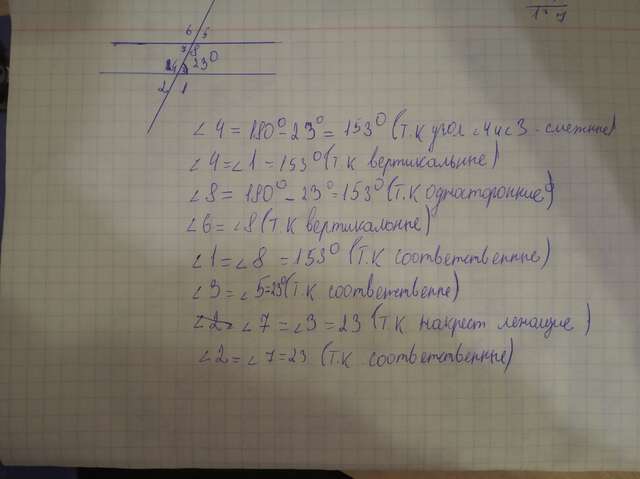 6 5
7 8
4 3 23°
2 1
∠4 = 180° - 23° = 153° (т.к угол ∠4 и ∠3 - смежные)
∠4 = ∠1 = 153° (т.к вертикальные)
∠8 = 180° - 23° = 153° (т.к односторонние)
∠6 = ∠8 (т.к вертикальные)
∠1 = ∠8 = 153° (т.к соответственные)
∠3 = ∠5 = 23° (т.к соответственне)
∠2 = ∠7 = ∠3 = 23 (т.к накрест лежащие)
∠2 = ∠7 = 23 (т.к. соответственные)